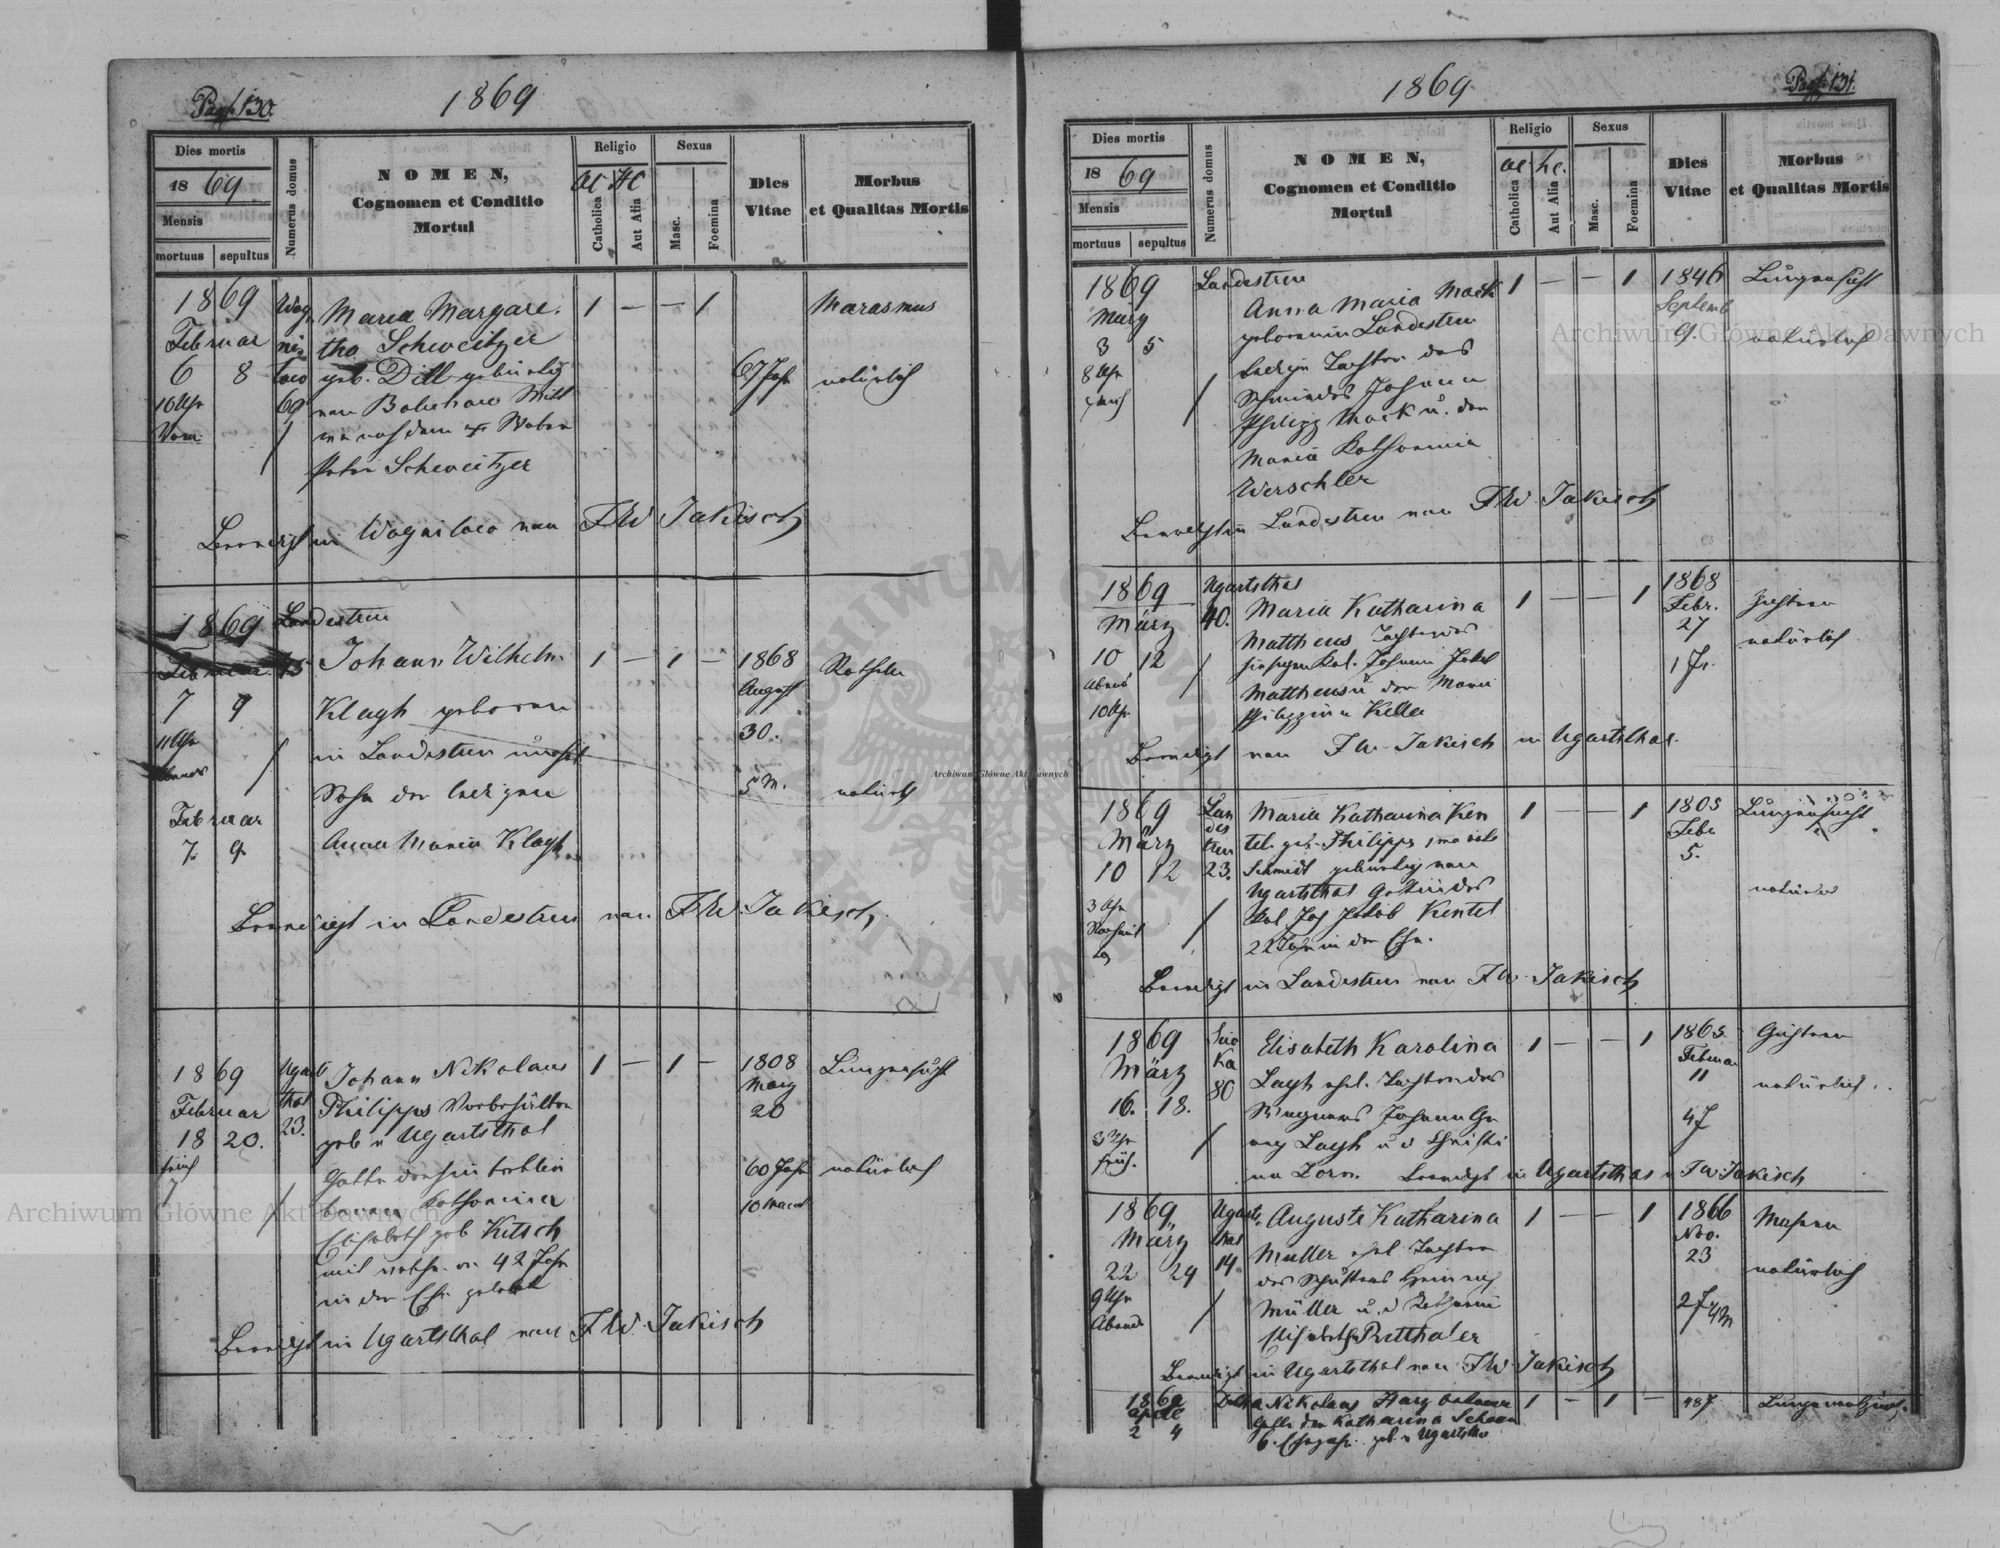 Pag. 130.
1869
Dies mortis
1869
Mensis
mortuus
sepultus
Numerus domus
NOMEN,
Cognomen et Conditio
Mortui
Religio
AC HC
Catholica
Aut Alia
Sexus
Masc.
Foemina
Dies
Vitae
Morbus
et Qualitas Mortis
1869
Februar
6 8
10 Uhr
Vorm.
69
Maria Margare-
tha Schweitzer
geb. Dill gebürtig
von
Peter Schweitzer
1 — — 1
67 Jahr
Marasmus
natürlich
Beerdigt in von FW Jakisch
1869
Februar
7 9
11 Uhr
Abends
Februar
7. 9.
Landestreu
Johann Wilhelm
Klagh geboren
in Landestreu unehel
Sohn der ledigen
Anna Maria Klagh
1 — 1 —
1868
August
30.
5 M.
natürlich
Beerdigt in Landestreu von FW. Jakisch
1869
Februar
18 20.
früh
7
Ugarts
thal
23.
Johann Nikolaus
Philipps
geb. v Ugartsthal
Gatte der hinterblie
benen Katharina
Elisabeth geb Kitsch
mit welcher er 42 Jahr
in der Ehe gelebt
1 — 1 —
1808
März
20
60 Jahr
10 Monat
Lungensucht
natürlich
Beerdigt in Ugartsthal von FW. Jakisch
Pag. 131.
1869
Dies mortis
1869
Mensis
mortuus
sepultus
Numerus domus
NOMEN,
Cognomen et Conditio
Mortui
Religio
AC HC.
Catholica
Aut Alia
Sexus
Masc.
Foemina
Dies
Vitae
Morbus
et Qualitas Mortis
1869
März
3 5
8 Uhr
Landestreu
Anna Maria Mack
geboren in Landestreu
ledige Tochter des
Johann
Philipp Mack u. der
Maria Katharina
Werschler
1 — — 1
1846
Septemb
9.
Lungensucht
natürlich
Beerdigt in Landestreu von FW. Jakisch
1869
März
10 12
Abend
10 Uhr
Ugartsthal
40.
Maria Katharina
Mattheus Tochter des
Kol. Johann Jakob
Mattheus u der Maria
Philippina Keller
1 — — 1
1868
Febr.
27
1 J.
natürlich
Beerdigt von FW. Jakisch in Ugartsthal.
1869
März
10 12
3 Uhr
Lan
des
treu
23.
Maria Katharina Ken
tel. geb. Philipps
Schmidt gebürtig von
Ugartsthal Gattin des
Kol Joh Jakob Kentel
22 Jahr in der Ehe.
1 — — 1
1805
Febr
5.
Lungensucht
natürlich
Beerdigt in Landestreu von FW. Jakisch
1869
März
16. 18.
3 Uhr
früh.
80
Elisabeth Karolina
Lagh ehel. Tochter des
Wagners Johann Ge
org Lagh u d Christi
na Zorn. Beerdigt in Ugartsthal v FW. Jakisch
1 — — 1
1865
Februar
11
4 J
natürlich
1869
März
22 24
9 Uhr
Abends
Ugarts
thal
14
Auguste Katharina
Muller ehel Tochter
des Heinrich
Müller u. d
Elisabetha
1 — — 1
1866
Nov.
23
2 J 4 M
Masern
natürlich
Beerdigt in Ugartsthal von FW. Jakisch
1869
April
2 4
Nikolaus
Gatte der Katharina
geb. v Ugartsthal
1 — 1 —
48 J
Archiwum Główne Akt Dawnych
Archiwum Główne Akt Dawnych
Archiwum Główne Akt Dawnych